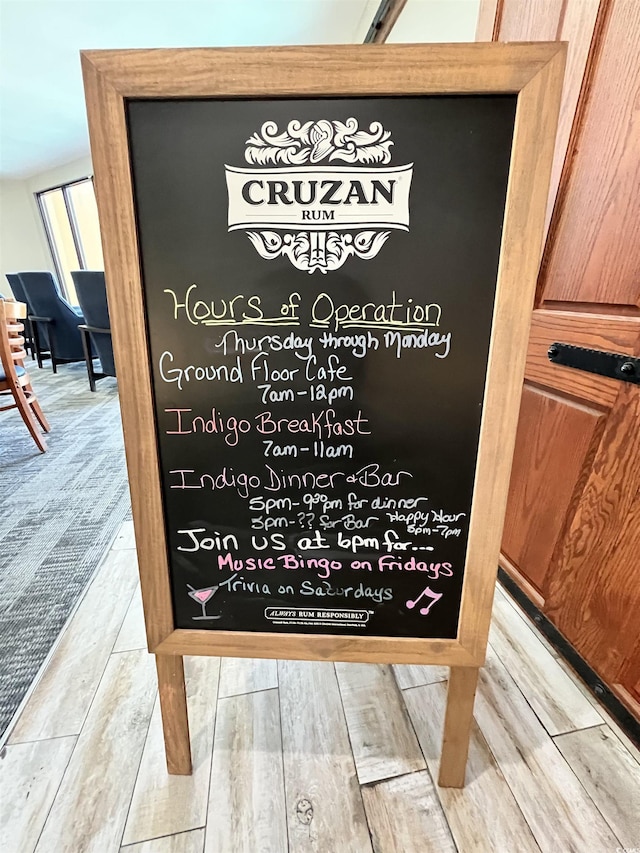 CRUZAN
RUM
Hours of Operation
Thursday through Monday
Ground Floor Cafe
7am-12pm
Indigo Breakfast
7am-11am
Indigo Dinner & Bar
5pm-9:30pm for dinner
3pm-?? for Bar
Happy Hour
5pm-7pm
Join us at 6pm for...
Music Bingo on Fridays
Trivia on Saturdays
ALWAYS RUM RESPONSIBLY